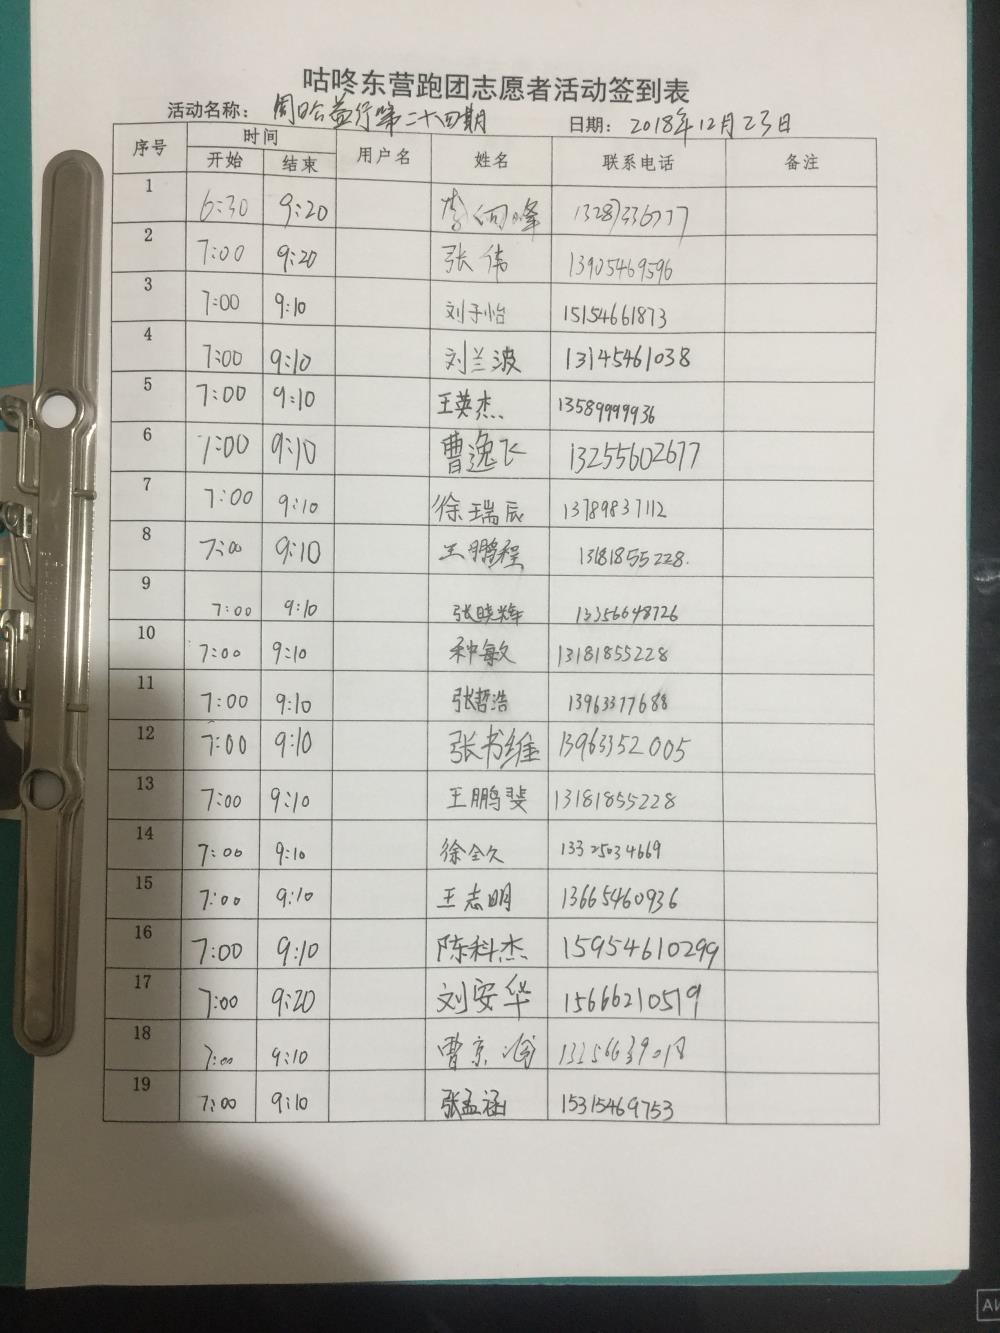 咕咚东营跑团志愿者活动签到表
活动名称： 周哈益行第二十四期 日期： 2018年12月23日
序号 时间 用户名 姓名 联系电话 备注
开始 结束
1 6:30 9:20 李向峰 13287336777
2 7:00 9:20 张伟 13905469596
3 7:00 9:10 刘子怡 15154661873
4 7:00 9:10 刘兰波 13145461038
5 7:00 9:10 王英杰 13589999936
6 7:00 9:10 曹逸飞 13255602677
7 7:00 9:10 徐瑞辰 13789837112
8 7:00 9:10 王鹏程 13181855228.
9 7:00 9:10 张晓辉 13356648726
10 7:00 9:10 种敏 13181855228
11 7:00 9:10 张哲浩 13963377688
12 7:00 9:10 张书维 13963352005
13 7:00 9:10 王鹏斐 13181855228
14 7:00 9:10 徐全久 13325034669
15 7:00 9:10 王志明 13665460936
16 7:00 9:10 陈科杰 15954610299
17 7:00 9:20 刘安华 15666210519
18 7:00 9:10 曹京
19 7:00 9:10 张孟涵 15315469753